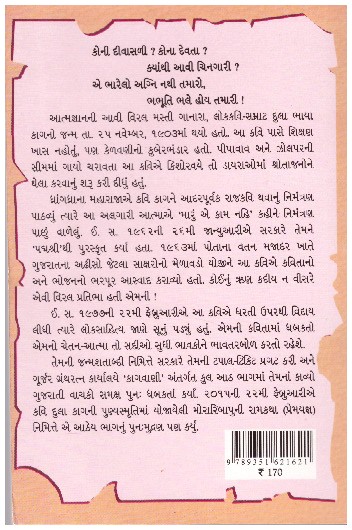 કોની દીવાસળી ? કોના દેવતા ?
ક્યાંથી આવી ચિનગારી ?
એ ભારેલો અગ્નિ નથી તમારો,
ભભૂતિ ભલે હોય તમારી !
આત્મજ્ઞાનની આવી વિરલ મસ્તી ગાનારા, લોકકવિ-સમ્રાટ દુલા ભાયા
કાગનો જન્મ તા. ૨૫ નવેમ્બર, ૧૯૦૩માં થયો હતો. આ કવિ પાસે શિક્ષણ
ખાસ નહોતું, પણ કેળવણીનો કુબેરભંડાર હતો. પીપાવાવ અને ઝોલપરની
સીમમાં ગાયો ચરાવતા આ કવિએ કિશોરવયે તો ડાયરાઓમાં શ્રોતાજનોને
ઘેલા કરવાનું શરૂ કરી દીધું હતું.
ધ્રાંગધ્રાના મહારાજાએ કવિ કાગને આદરપૂર્વક રાજકવિ થવાનું નિમંત્રણ
પાઠવ્યું ત્યારે આ અલગારી આત્માએ 'મારું એ કામ નહિ' કહીને નિમંત્રણ
પાછું વાળેલું. ઈ. સ. ૧૯૬૨ની ૨૬મી જાન્યુઆરીએ સરકારે તેમને
'પદ્મશ્રી'થી પુરસ્કૃત કર્યા હતા. ૧૯૬૩માં પોતાના વતન મજાદર ખાતે
ગુજરાતના અઢીસો જેટલા સાક્ષરોનો મેળાવડો યોજીને આ કવિએ કવિતાનો
અને ભોજનનો ભરપૂર આસ્વાદ કરાવ્યો હતો. કોઈનું ઋણ કદીય ન વીસરે
એવી વિરલ પ્રતિભા હતી એમની !
ઈ. સ. ૧૯૭૭ની ૨૨મી ફેબ્રુઆરીએ આ કવિએ ધરતી ઉપરથી વિદાય
લીધી ત્યારે લોકસાહિત્ય જાણે સૂનું પડ્યું હતું. એમની કવિતામાં ધબકતો
એમનો ચેતન-આત્મા તો સદીઓ સુધી ભાવકોને ભાવતરબોળ કરતો રહેશે.
તેમની જન્મશતાબ્દી નિમિત્તે સરકારે તેમની ટપાલ-ટિકિટ પ્રગટ કરી અને
ગૂર્જર ગ્રંથરત્ન કાર્યાલયે 'કાગવાણી' અંતર્ગત કુલ આઠ ભાગમાં તેમનાં કાવ્યો
ગુજરાતી વાચકો સમક્ષ પુનઃ ધબકતાં કર્યાં. ૨૦૧૫ની ૨૨મી ફેબ્રુઆરીએ
કવિ દુલા કાગની પુણ્યસ્મૃતિમાં યોજાયેલી મોરારિબાપુની રામકથા (પ્રેમયજ્ઞ)
નિમિત્તે એ આઠેય ભાગનું પુનઃમુદ્રણ પણ કર્યું.
9 789351 621621
₹ 170